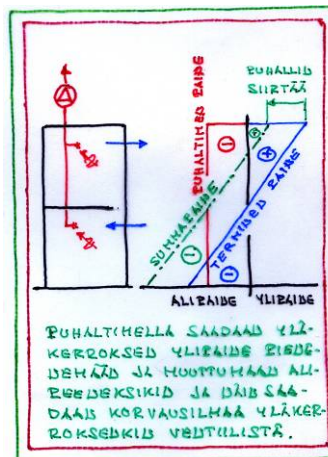 PUHALLIN
SIIRTÄÄ
PUHALTIMEN PAINE
SUMMAPAINE
TERMINEN PAINE
+
+
ALIPAINE YLIPAINE
PUHALTIMELLA SAADAAN YLÄ-
KERROKSEN YLIPAINE PIENE-
NEMÄÄN JA MUUTTUMAAN ALI-
PEENEKSIKIN JA NÄIN SAA-
DAAN KORVAUSILMAA YLÄKER-
ROKSENKIN VENTIILISTÄ.